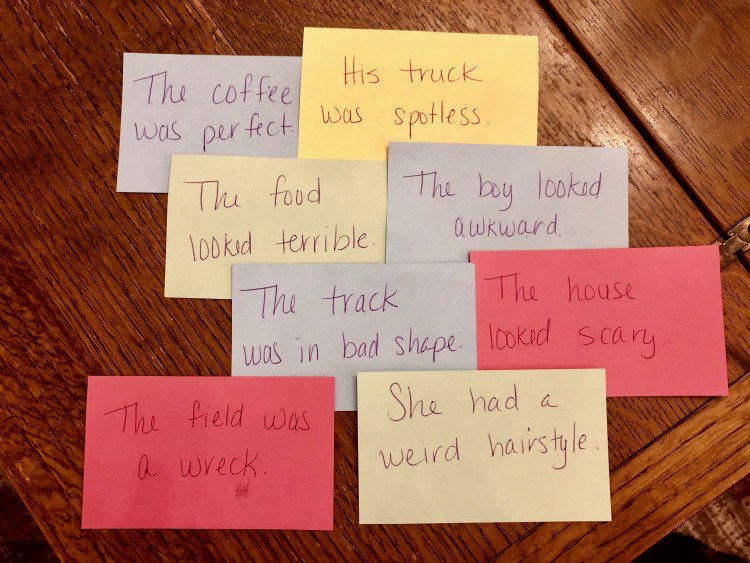 The coffee
was perfect.
His truck
was spotless.
The food
looked terrible.
The boy looked
awkward.
The track
was in bad shape.
The house
looked scary.
The field was
a wreck.
She had a
weird hairstyle.